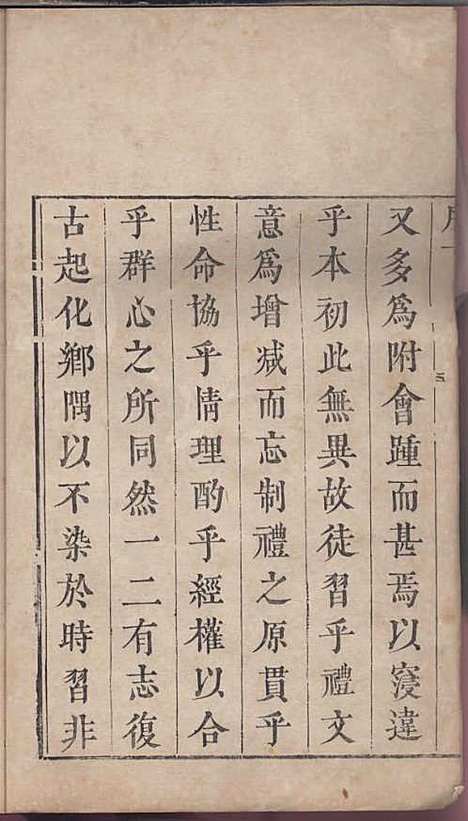 又多為附會踵而甚焉以寖違
乎本初此無異故徒習乎禮文
意為增减而忘制禮之原貫乎
性命協乎情理酌乎經權以合
乎群心之所同然一二有志復
古起化鄉隅以不染於時習非